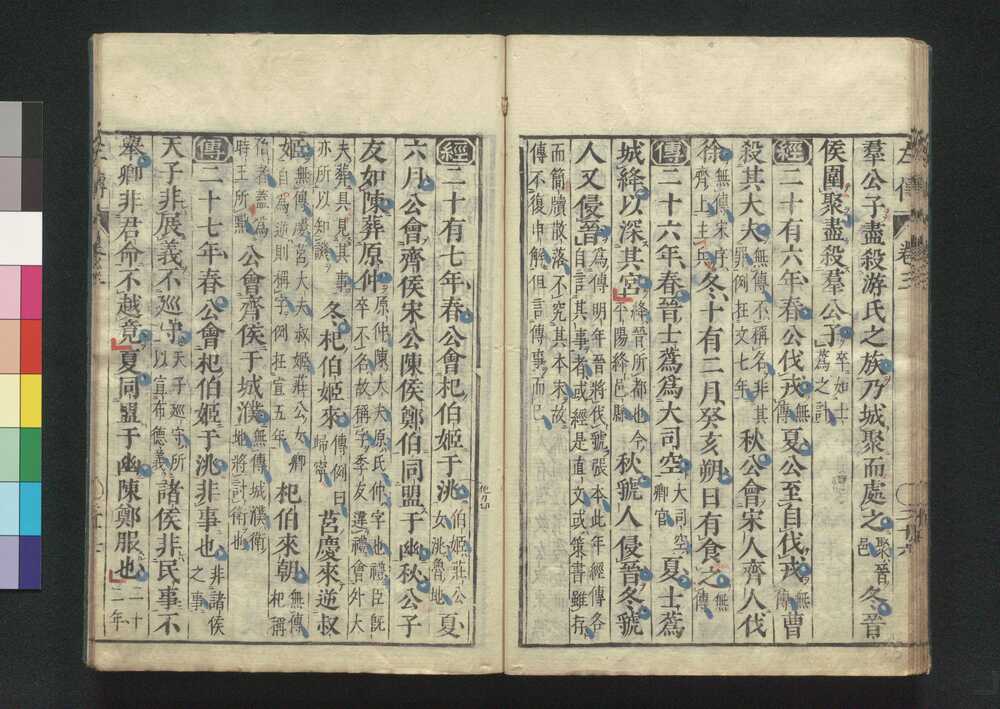 羣公子盡殺游氏之族乃城聚而處之聚晉邑冬晉
侯圍聚盡殺羣公子卒如士蒍之計
經二十有六年春公伐戎無傳夏公至自伐戎無傳曹
殺其大夫無傳不稱名非其罪例在文七年秋公會宋人齊人伐
徐無傳宋序齊上主兵冬十有二月癸亥朔日有食之無傳
傳二十六年春晉士蒍爲大司空大司空卿官夏士蒍
城絳以深其宮絳晉所都也今平陽絳邑縣秋虢人侵晉冬虢
人又侵晉爲傳明年晉將伐虢張本此年經傳各自言其事者或經是直文或策書雖存
而簡牘散落不究其本末故傳不復申解但言傳事而已
經二十有七年春公會杞伯姬于洮伯姬莊公女洮魯地夏
六月公會齊侯宋公陳侯鄭伯同盟于幽秋公子
友如陳葬原仲原仲陳大夫原氏仲字也禮臣旣卒不名故稱字季友違禮會外大
夫葬具見其事亦所以知譏冬杞伯姬來傳例曰歸寧莒慶來逆叔
姬無傳慶莒大夫叔姬莊公女卿自爲逆則稱字例在宣五年杞伯來朝無傳杞稱
伯者蓋爲時王所黜公會齊侯于城濮無傳城濮衛地將討衛也
傳二十七年春公會杞伯姬于洮非事也非諸侯之事
天子非展義不巡守天子巡守所以宣布德義諸侯非民事不
舉卿非君命不越竟夏同盟于幽陳鄭服也二十二年
左傳 卷三